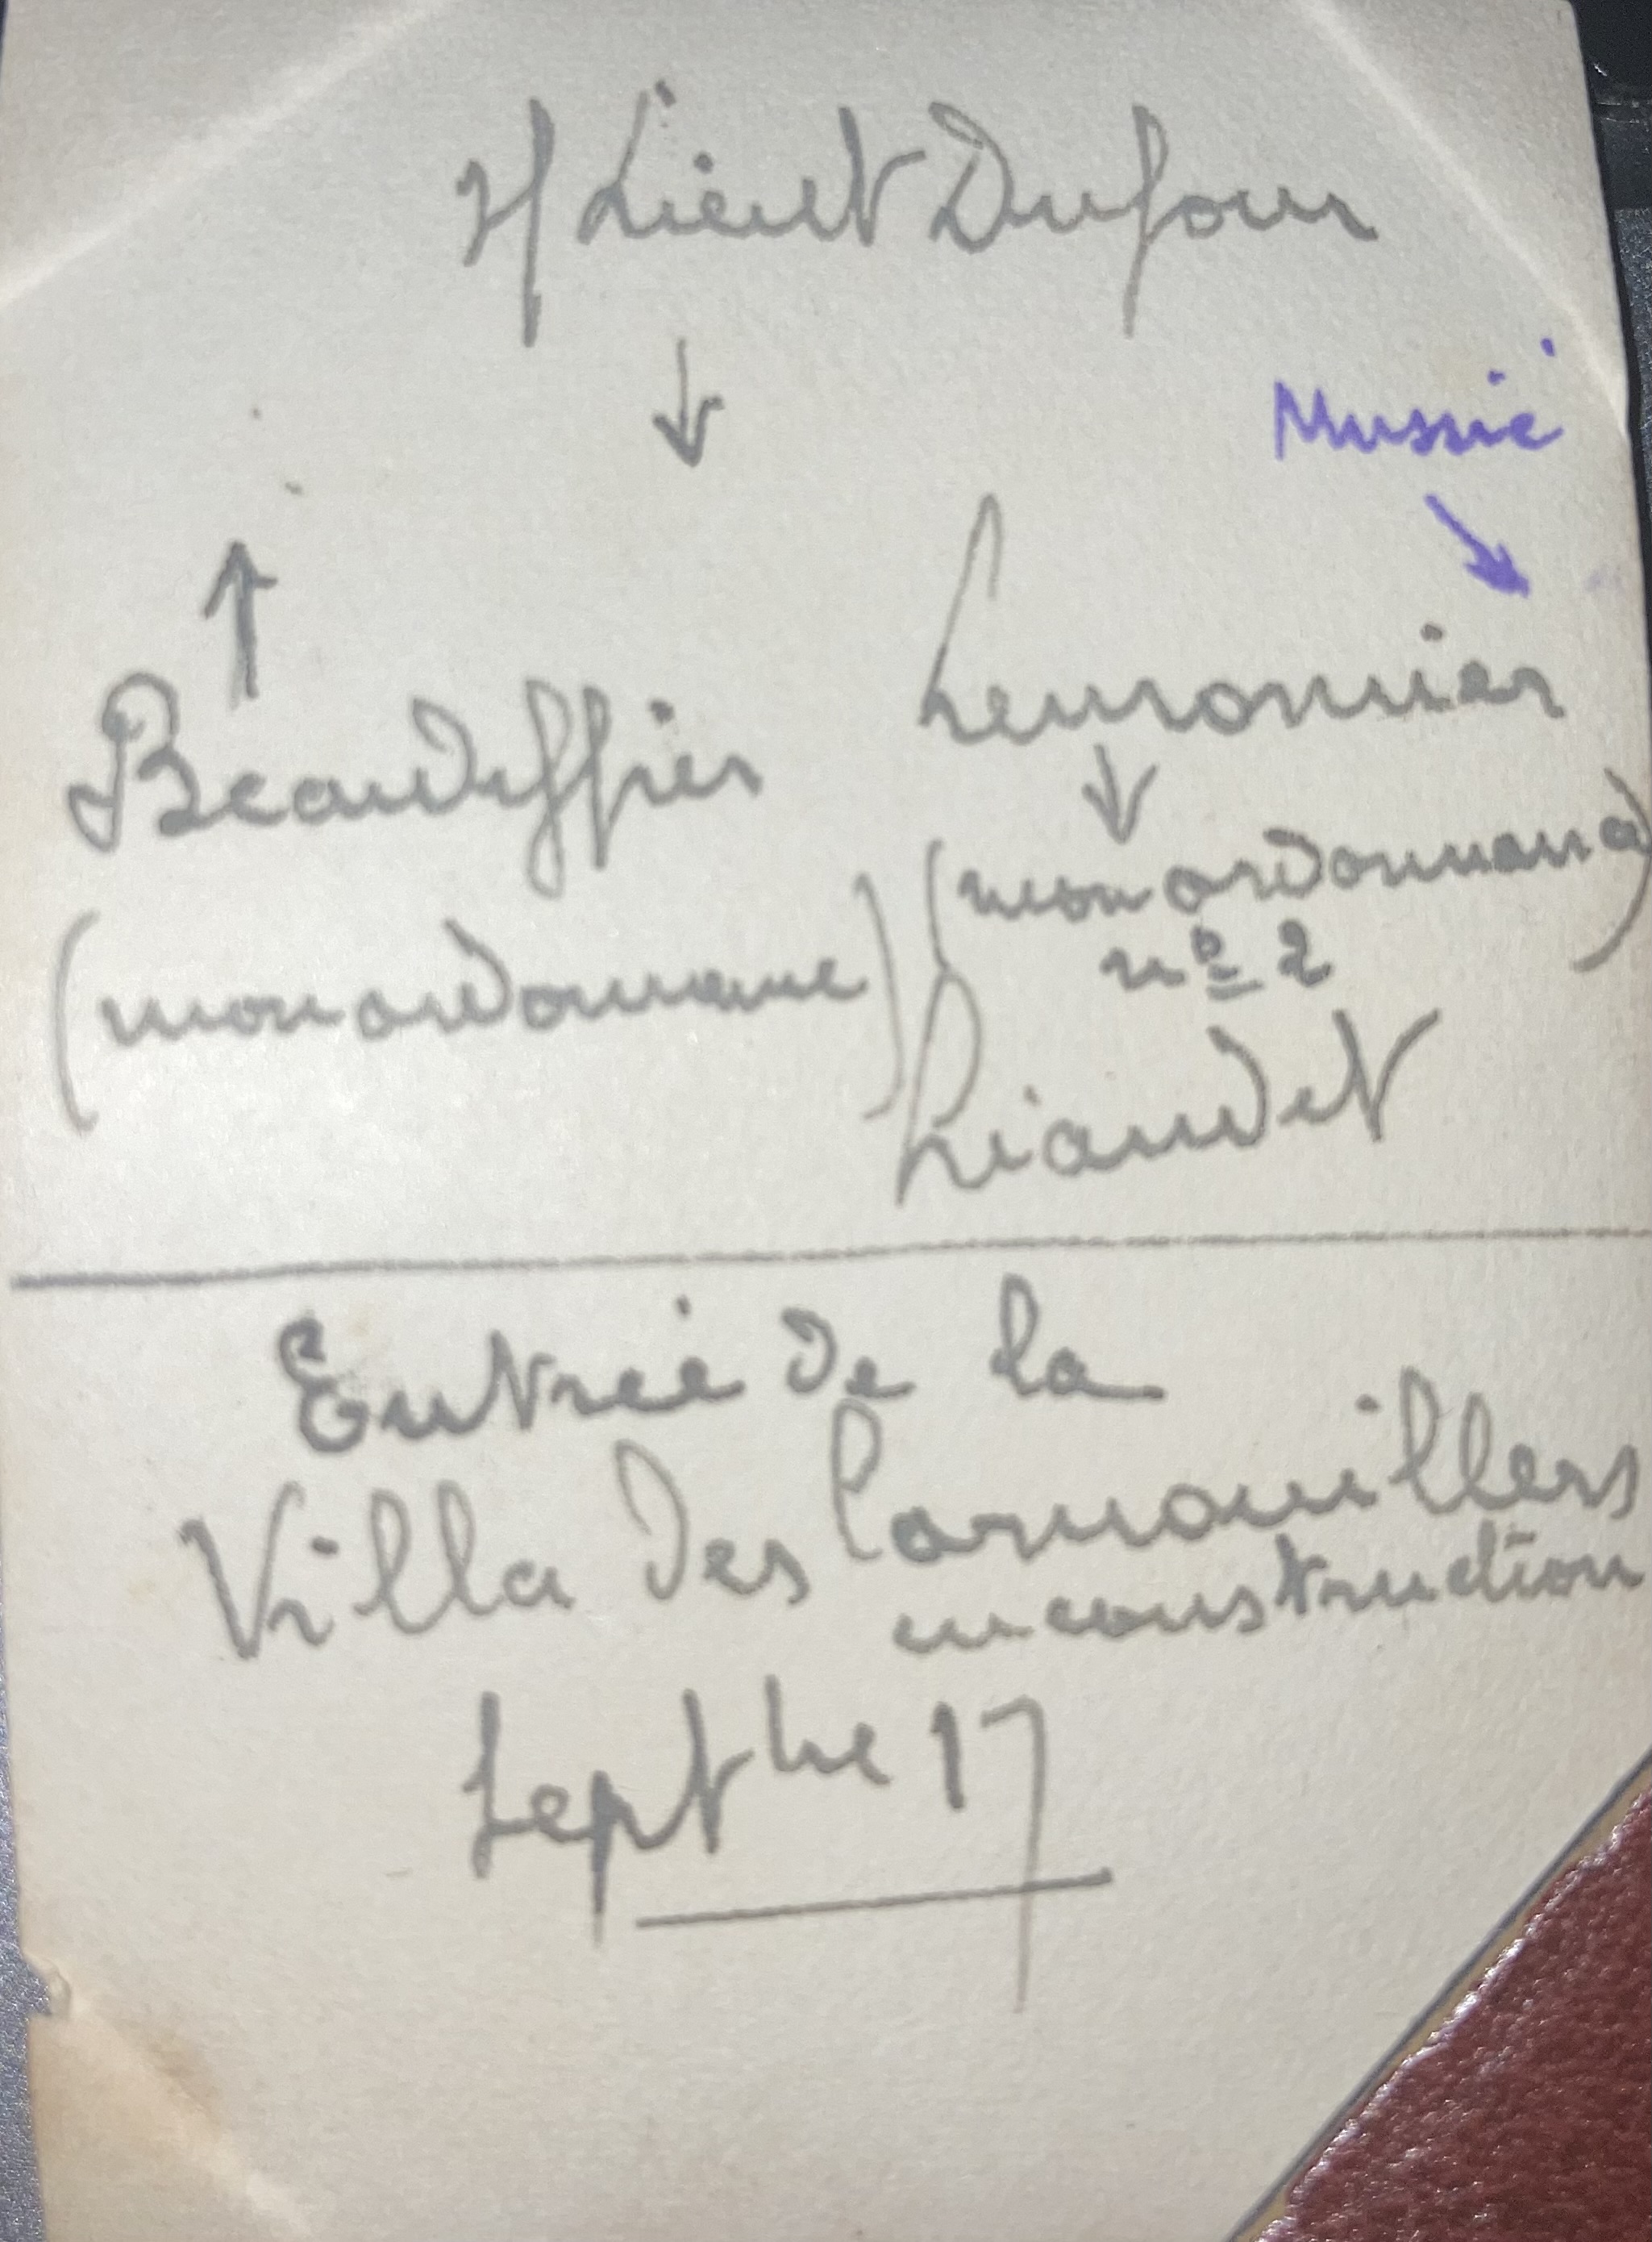 S/Lieut Dufour
↓
Mussié
↘
↑
Beaudeffier
(mon ordonnance)
Lemonnier
↓
(mon ordonnance)
nº 2
Liaudet
Entrée de la
Villa des Cornouillers
en construction
Septbre 17